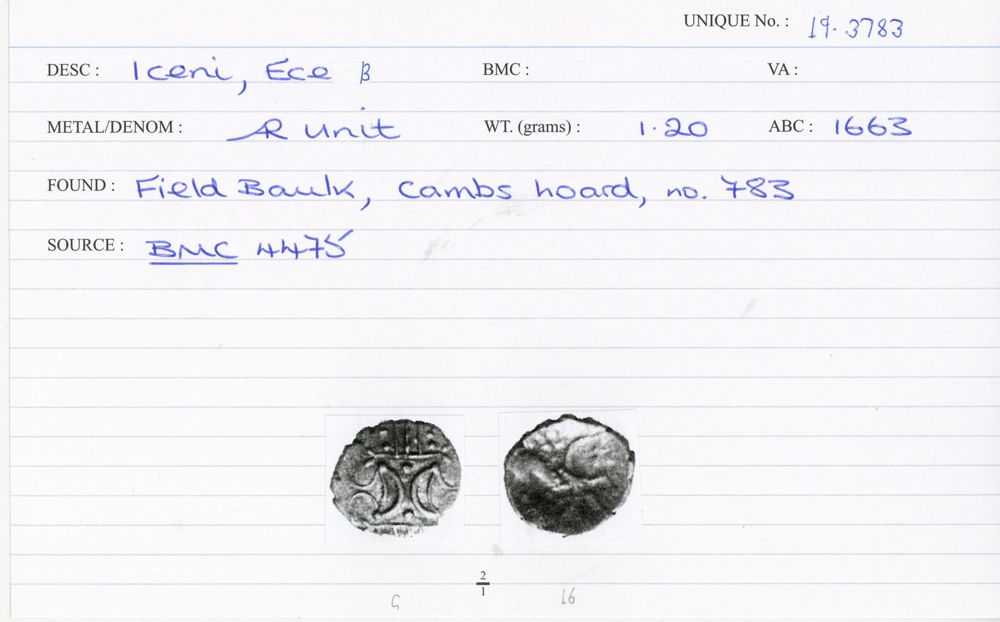 UNIQUE No. : 19.3783
DESC : Iceni, Ece β BMC : VA :
METAL/DENOM : AR Unit WT. (grams) : 1.20 ABC : 1663
FOUND : Field Baulk, Cambs hoard, no. 783
SOURCE : BMC 4475
2
1
G 16